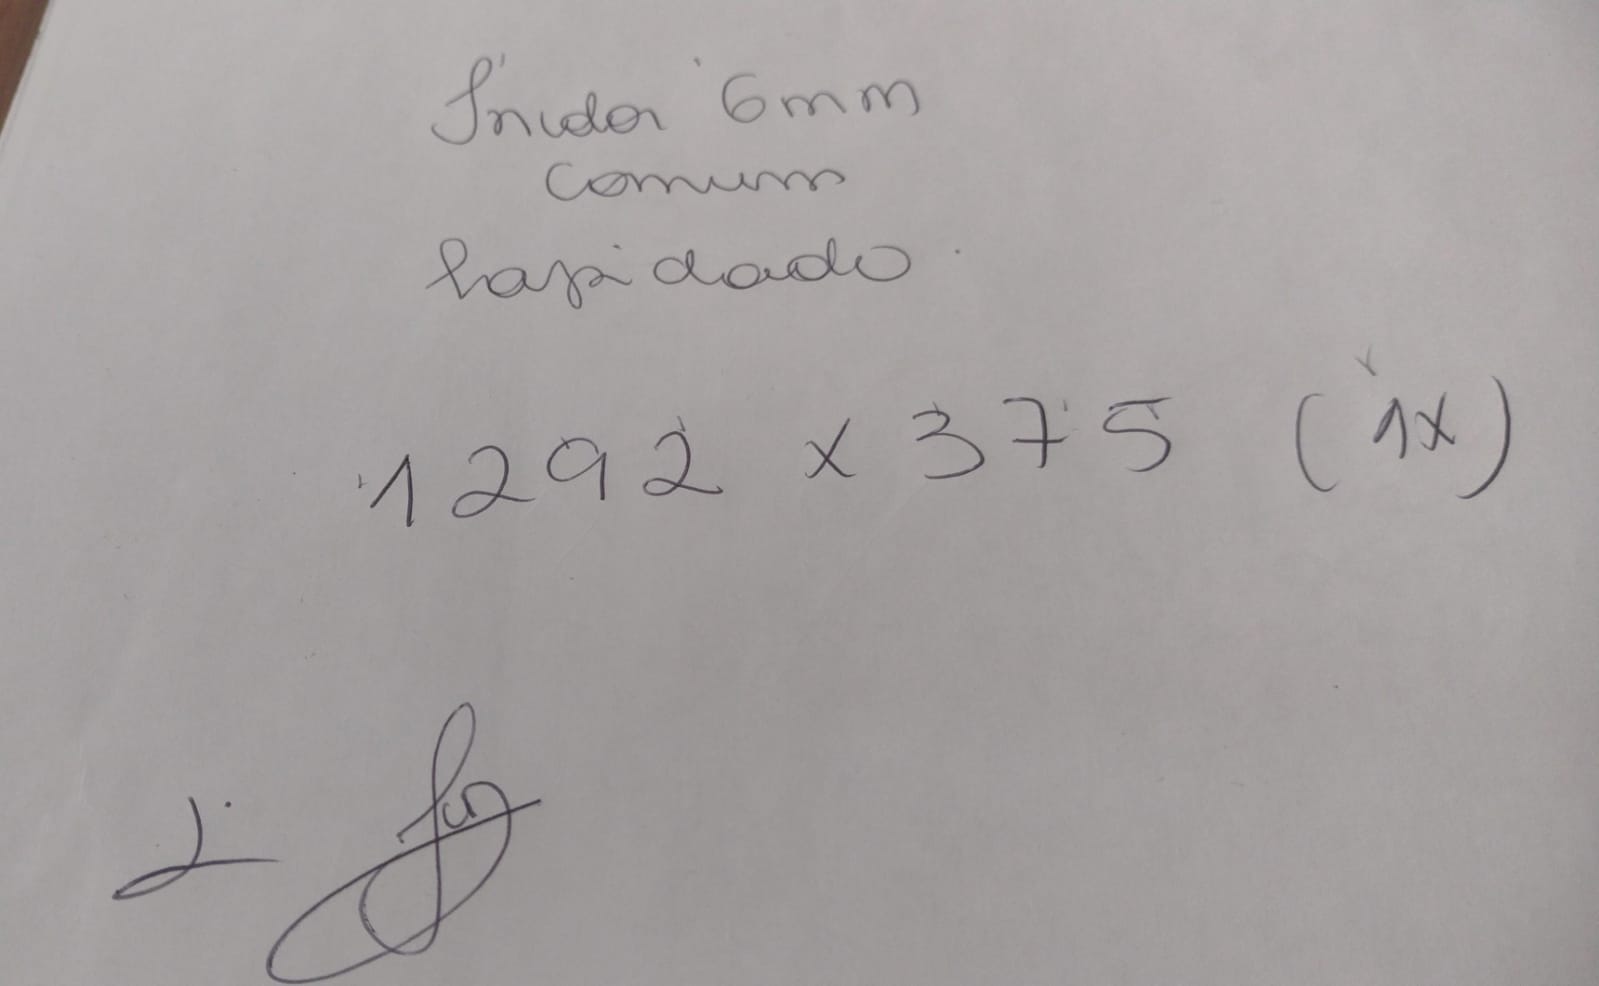 Incolor 6mm
comum
Lapidado.
1292 x 375 (1x)